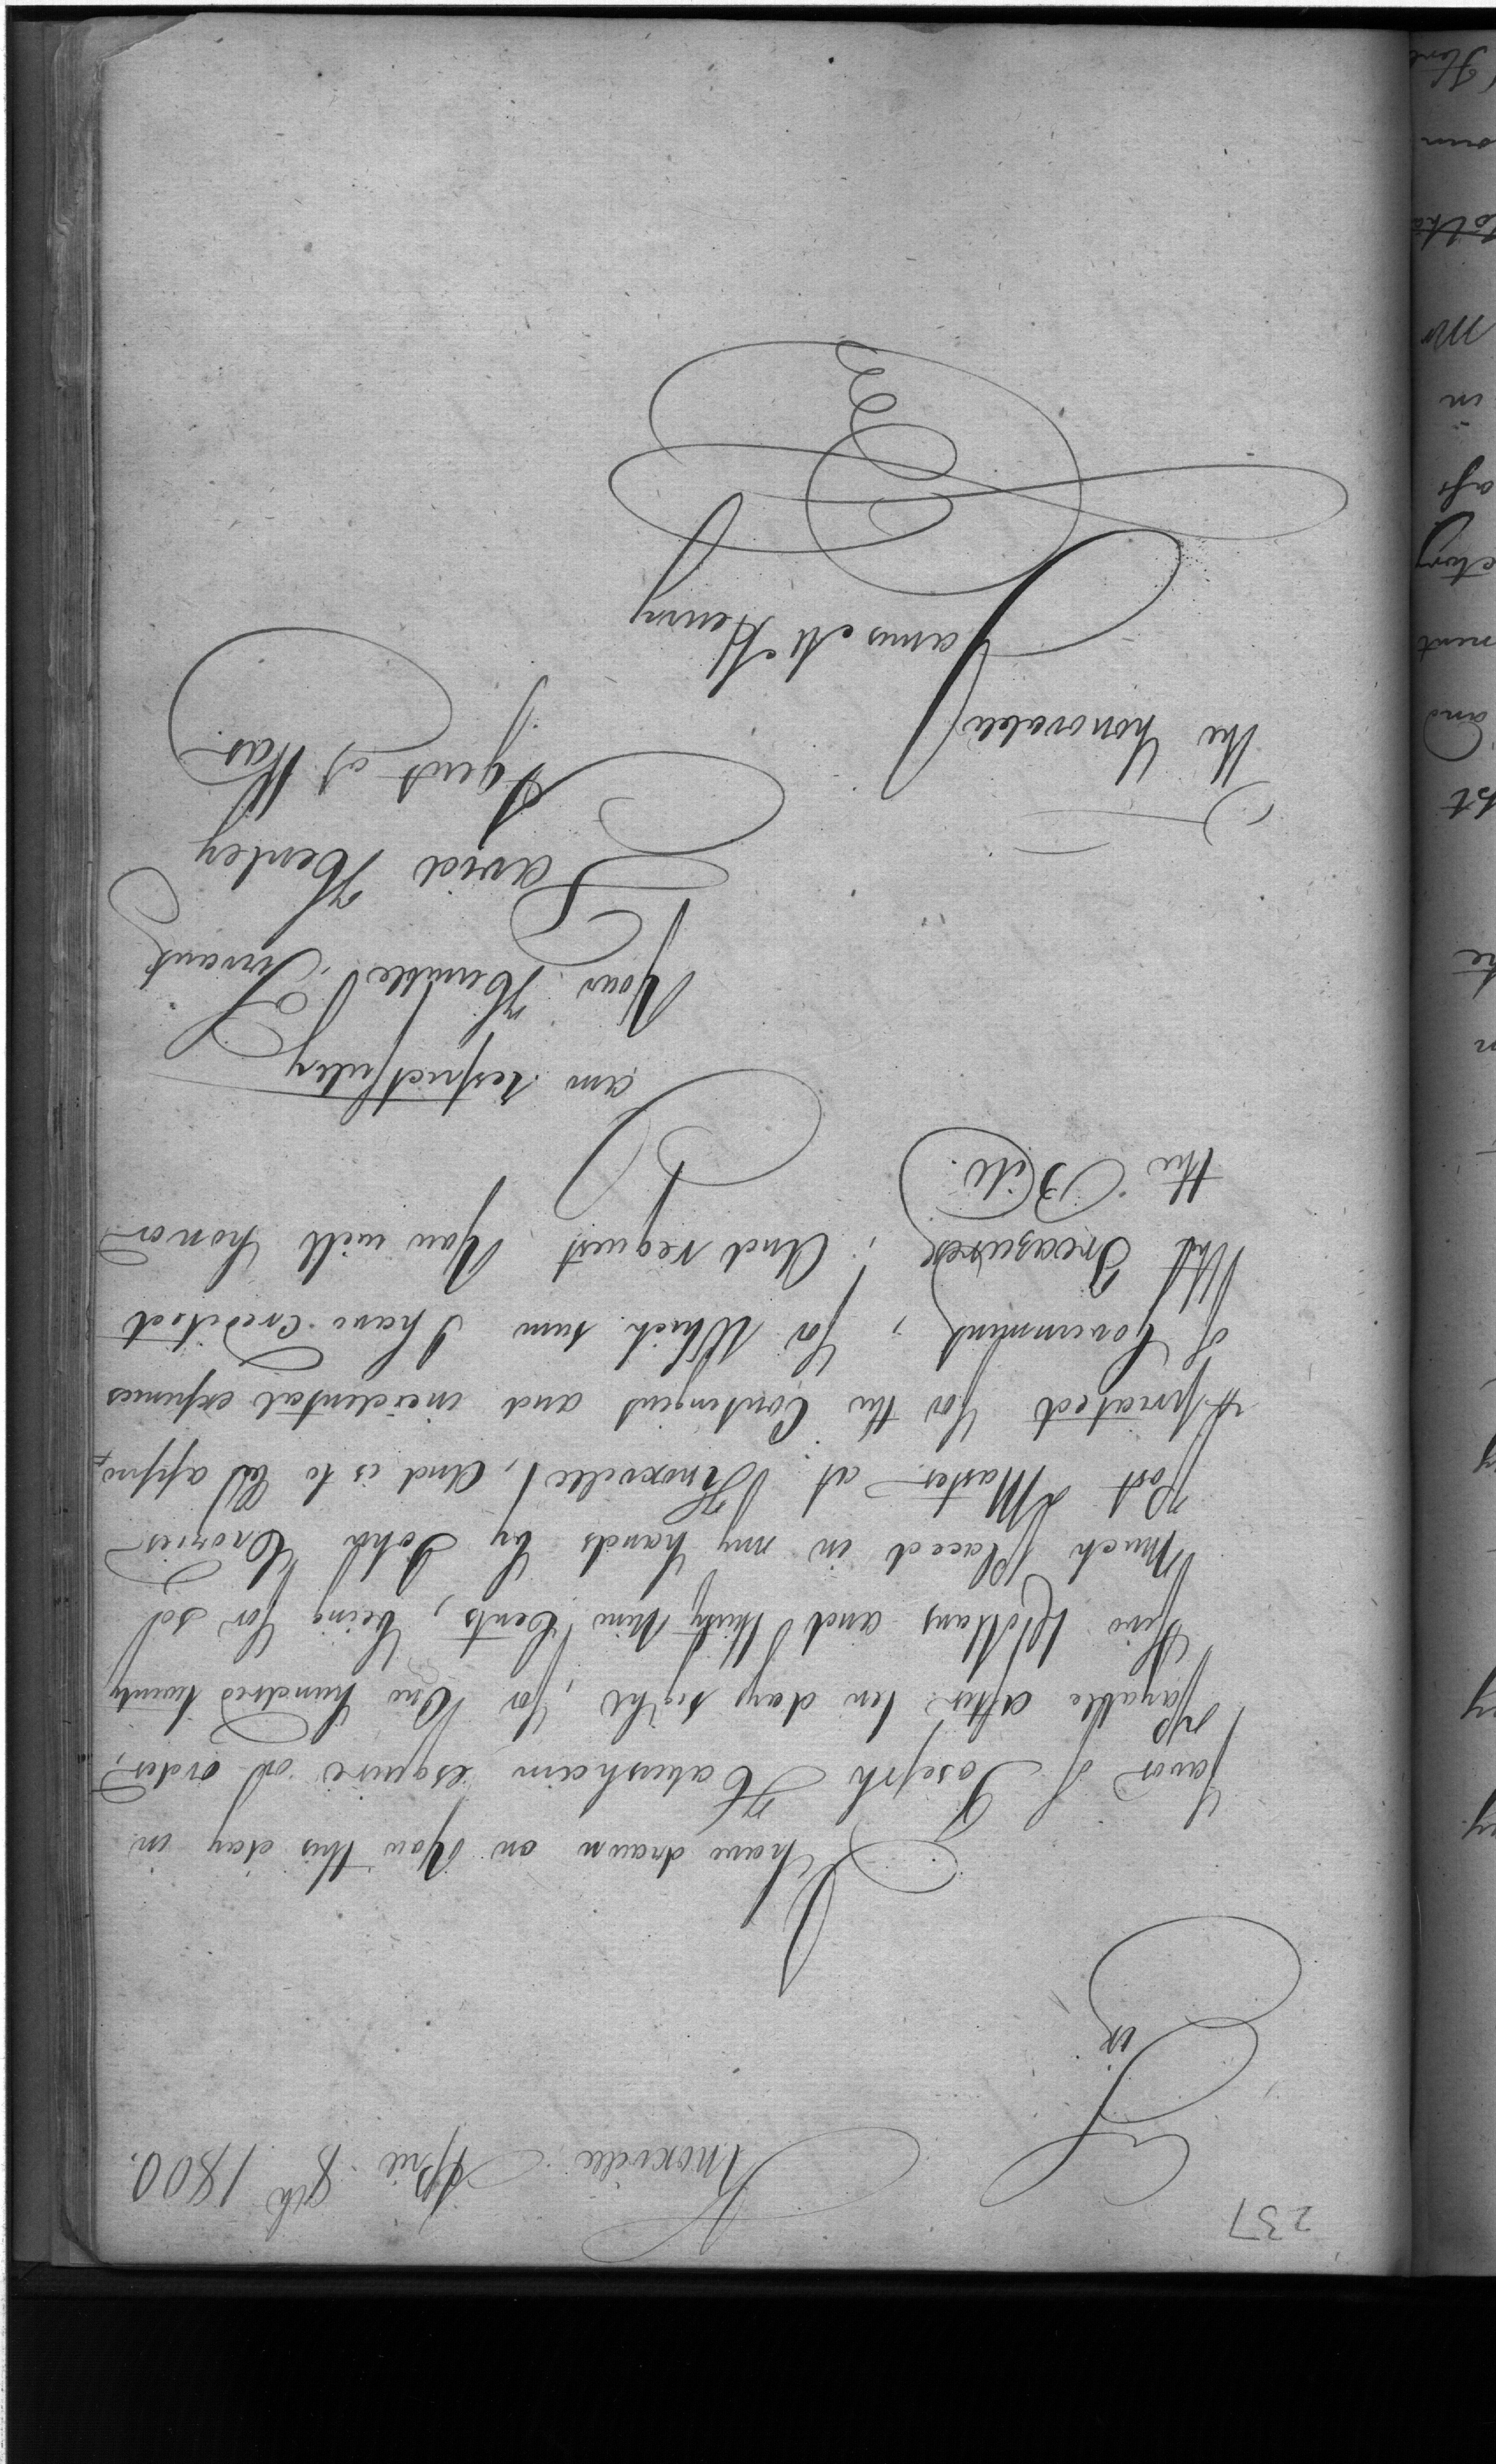 237
Knoxville April 8th 1800.
Sir
I have drawn on You this day in
favor of Joseph Habersham esquire or order,
payable after ten days sight, for One hundred twenty
five Dollars and thirty Nine Cents, being for so
Much placed in my hands by John Crozier
Post Master at Knoxville, And is to be appro-
-priated for the Contingent and incidental expenses
of Government, for Which sum I have credited
the Treasurer; And request You will honor
the Bill.
I am respectfully
Your Humble Servant
David Henley
Agent of War
The honorable
James McHenry